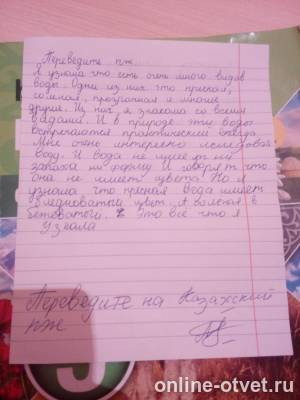 Переведите пж.
Я узнала что есть очень много видов
воды. Одни из них это пресная,
солёная, прозрачная и многие
другие. Из них я знакома со всеми
видами. И в природе эти воды
встречаются практически всегда.
Мне очень интересно исследовать
воду. И вода не имеет ни
запаха ни форму И говорят что
она не имеет цвета. Но я
узнала что пресная вода имеет
цвет. А солёная в
Это всё что я
узнала
Переведите на Казахский
пж
online-otvet.ru